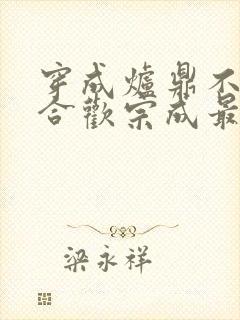 穿成爐鼎不
合歡宗成最
梁永祥